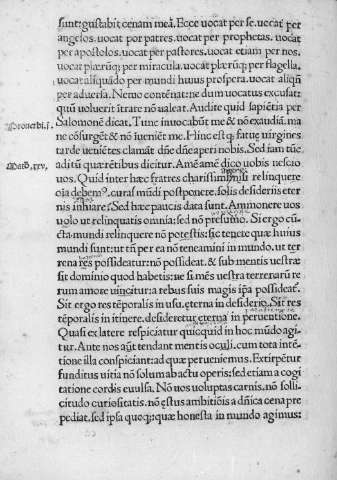 sunt: gustabūt cenam meā. Ecce uocat per se. uocat per
angelos. uocat por patres. uocat per prophetas. uocat
per apostolos. uocat per pastores. uocat etiam per nos.
uocat plærūq; per miracula. uocat plærūq; per flagella.
uocat aliquādo per mundi huius prospera. uocat aliqñ
per aduersa. Nemo contēnat: ne dum uocatus excusat:
quū uoluerit ītrare nō ualeat. Audite quid sapiētia per
Prouerbi. i.
Salomonē dicat. Tunc inuocabūt me & nō exaudiā. ma
ne cōsurgēt & nō iueniēt me. Hinc est q fatuæ uirgines
tarde ueniētes clamāt dñe dñe aperi nobis. Sed iam tūc
Math. xxv.
aditū quærētibus dicitur. Amē amē dico uobis nescio
uos. Quid inter hæc fratres charissimi nisi relinquere
oīa debem⁹. curas mūdi postponere. solis desideriis eter
nis inhiare? Sed hæc paucis data sunt. Ammonere uos
uolo ut relinquatis omnia: sed nō presumo. Si ergo cū
cta mundi relinquere nō potestis: sic tenete quæ huius
mundi sunt: ut tñ per ea nō teneamini in mundo. ut ter
rena res possideatur: nō possideat. & sub mentis uestræ
sit dominio quod habetis: ne si mēs uestra terrenarū re
rum amore uincitur: a rebus suis magis ipa possideat.
Sit ergo res tēporalis in usu. eterna in desiderio. Sit res
tēporalis in itinere. desideretur eterna in peruentione.
Quasi ex latere respiciatur quicquid in hoc mūdo agi
tur. Ante nos aūt tendant mentis oculi. cum tota intē
tione illa conspiciant: ad quæ perueniemus. Extirpētur
funditus uitia nō solum ab actu operis: sed etiam a cogi
tatione cordis euulsa. Nō uos uoluptas carnis. nō solli
citudo curiositatis. nō ęstus ambitiōis a dñica cena præ
pediat. sed ipsa quoq; quæ honesta in mundo agimus: